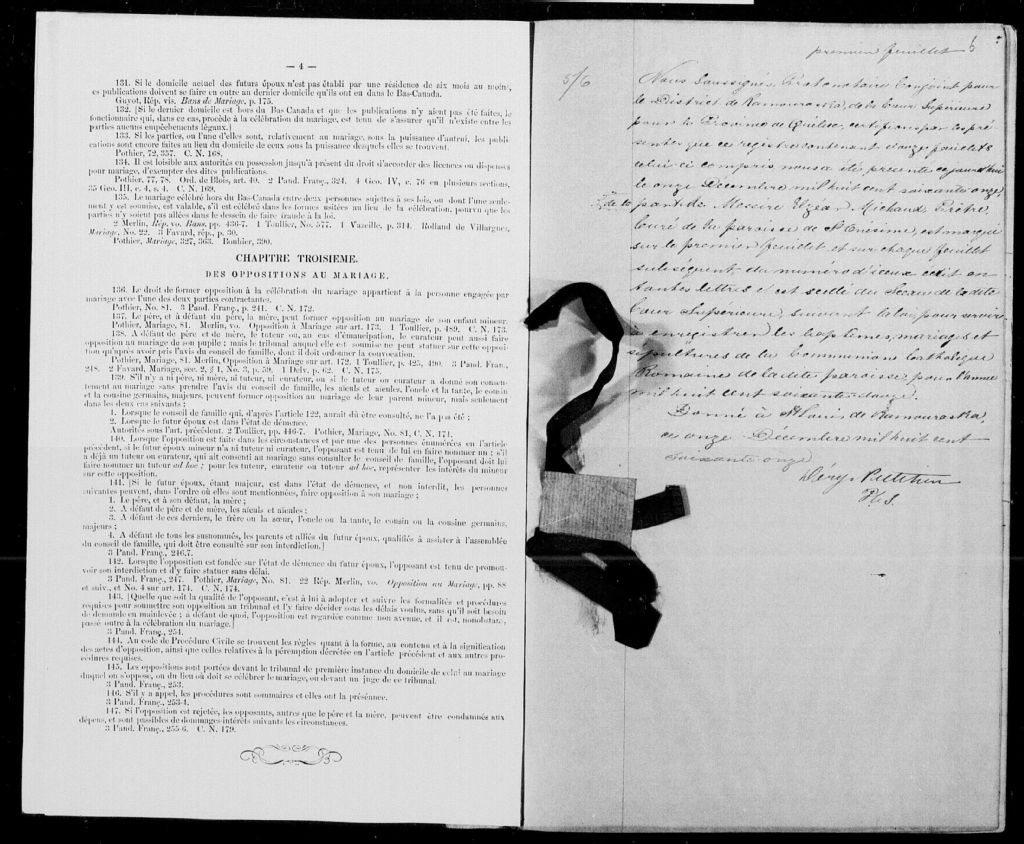 — 4 —
131. Si le domicile actuel des futurs époux n'est pas établi par une résidence de six mois au moins,
ces publications doivent se faire en outre au dernier domicile qu'ils ont eu dans le Bas-Canada.
Guyot, Rép. vis. Bans de Mariage, p. 175.
132. [Si le dernier domicile est hors du Bas Canada et que les publications n'y aient pas été faites, le
fonctionnaire qui, dans ce cas, procède à la célébration du mariage, est tenu de s'assurer qu'il n'existe entre les
parties aucuns empêchements légaux.]
133. Si les parties, ou l'une d'elles sont, relativement au mariage, sous la puissance d'autrui, les publi-
cations sont encore faites au lieu du domicile de ceux sous la puissance desquels elles se trouvent.
Pothier, 72, 357. C. N. 168.
134. Il est loisible aux autorités en possession jusqu'à présent du droit d'accorder des licences ou dispenses
pour mariage, d'exempter des dites publications.
Pothier, 77, 78. Ord. de Blois, art. 40. 2 Pand. Franç., 324. 4 Geo. IV, c. 76 en plusieurs sections,
35 Geo. III, c. 4, s. 4. C. N. 169.
135. Le mariage célébré hors du Bas-Canada entre deux personnes sujettes à ses lois, ou dont l'une seule-
ment y est soumise, est valable, s'il est célébré dans les formes usitées au lieu de la célébration, pourvu que les
parties n'y soient pas allées dans le dessein de faire fraude à la loi.
2 Merlin, Rép. vo. Bans, pp. 436-7. 1 Toullier, No. 577. 1 Vazeille, p. 314. Rolland de Villargues,
Mariage, No. 22. 3 Favard, rép., p. 30.
Pothier, Mariage, 327, 363. Bouhier, 390.
CHAPITRE TROISIEME.
DES OPPOSITIONS AU MARIAGE.
136. Le droit de former opposition à la célébration du mariage appartient à la personne engagée par
mariage avec l'une des deux parties contractantes.
Pothier, No. 81. 3 Pand. Franç., p. 241. C. N. 172.
137. Le père, et à défaut du père, la mère, peut former opposition au mariage de son enfant mineur.
Pothier, Mariage, 81. Merlin, vo. Opposition à Mariage sur art. 173. 1 Toullier, p. 489. C. N. 173.
138. A défaut de père et de mère, le tuteur ou, au cas d'émancipation, le curateur peut aussi faire
opposition au mariage de son pupille ; mais le tribunal auquel elle est soumise ne peut statuer sur cette opposi-
tion qu'après avoir pris l'avis du conseil de famille, dont il doit ordonner la convocation.
Pothier, Mariage, 81. Merlin, Opposition à Mariage sur art. 172. 1 Toullier, p. 425, 490. 3 Pand. Fran.,
248. 2 Favard, Mariage, sec. 2, § 1, No. 3, p. 59. 1 Delv. p. 62. C. N. 175.
139. S'il n'y a ni père, ni mère, ni tuteur, ni curateur, ou si le tuteur ou curateur a donné son consen-
tement au mariage sans prendre l'avis du conseil de famille, les aïeuls et aïeules, l'oncle et la tante, le cousin
et la cousine germains, majeurs, peuvent former opposition au mariage de leur parent mineur, mais seulement
dans les deux cas suivants :
1. Lorsque le conseil de famille qui, d'après l'article 122, aurait dû être consulté, ne l'a pas été ;
2. Lorsque le futur époux est dans l'état de démence.
Autorités sous l'art. précédent. 2 Toullier, pp. 446-7. Pothier, Mariage, No. 81, C. N. 174.
140. Lorsque l'opposition est faite dans les circonstances et par une des personnes énumérées en l'article
précédent, si le futur époux mineur n'a ni tuteur ni curateur, l'opposant est tenu de lui en faire nommer un ; s'il
a déjà un tuteur ou curateur, qui ait consenti au mariage sans consulter le conseil de famille, l'opposant doit lui
faire nommer un tuteur ad hoc ; pour les tuteur, curateur ou tuteur ad hoc, représenter les intérêts du mineur
sur cette opposition.
141. [Si le futur époux, étant majeur, est dans l'état de démence, et non interdit, les personnes
suivantes peuvent, dans l'ordre où elles sont mentionnées, faire opposition à son mariage ;
1. Le père, et à son défaut, la mère ;
2. A défaut de père et de mère, les aïeuls et aïeules ;
3. A défaut de ces derniers, le frère ou la sœur, l'oncle ou la tante, le cousin ou la cousine germains,
majeurs ;
4. A défaut de tous les susnommés, les parents et alliés du futur époux, qualifiés à assister à l'assemblée
du conseil de famille, qui doit être consulté sur son interdiction.]
3 Pand. Franç., 246.7.
142. Lorsque l'opposition est fondée sur l'état de démence du futur époux, l'opposant est tenu de promou-
voir son interdiction et d'y faire statuer sans délai.
3 Pand. Franç., 247. Pothier, Mariage, No. 81. 22 Rép. Merlin, vo. Opposition au Mariage, pp. 88
et suiv., et No. 4 sur art. 174. C. N. 174.
143. [Quelle que soit la qualité de l'opposant, c'est à lui à adopter et suivre les formalités et procédures
requises pour soumettre son opposition au tribunal et l'y faire décider sous les délais voulus, sans qu'il soit besoin
de demande en mainlevée ; à défaut de quoi, l'opposition est regardée comme non avenue, et il est, nonobstant,
passé outre à la célébration du mariage.]
3 Pand. Franç., 254.
144. Au code de Procédure Civile se trouvent les règles quant à la forme, au contenu et à la signification
des actes d'opposition, ainsi que celles relatives à la péremption décrétée en l'article précédent et aux autres pro-
cédures requises.
145. Les oppositions sont portées devant le tribunal de première instance du domicile de celui au mariage
duquel on s'oppose, ou du lieu où doit se célébrer le mariage, ou devant un juge de ce tribunal.
3 Pand. Franç., 253.
146. S'il y a appel, les procédures sont sommaires et elles ont la préséance.
3 Pand. Franç., 253-4.
147. Si l'opposition est rejetée, les opposants, autres que le père et la mère, peuvent être condamnés aux
dépens, et sont passibles de dommages-intérêts suivants les circonstances.
3 Pand. Franç., 255 6. C. N. 179.
premier feuillet 6
5/6
Nous Soussignés, Protonotaire Conjoint pour
le District de Kamouraska, de la Cour Supérieure
pour la Province de Québec, certifions par les pré-
sentes que ce registre contenant d'onze feuillets
celui-ci compris nous a été présenté ce jourd'hui
le onze Décembre mil huit cent soixante onze,
de la part de Messire Elzéar Michaud Prêtre
Curé de la paroisse de St Onésime, est marqué
sur le premier feuillet et sur chaque feuillet
subséquent du numéro d'iceux écrit en
toutes lettres & est scellé du Sceau de la dite
Cour Supérieure, suivant la loi, pour servir
à enregistrer les baptêmes, mariages et
sépultures de la Communion Catholique
Romaine de la dite paroisse, pour l'année
mil huit cent soixante douze.
Donné à St Louis de Kamouraska,
ce onze Décembre mil huit cent
soixante onze
Pelletier
P.C.S.